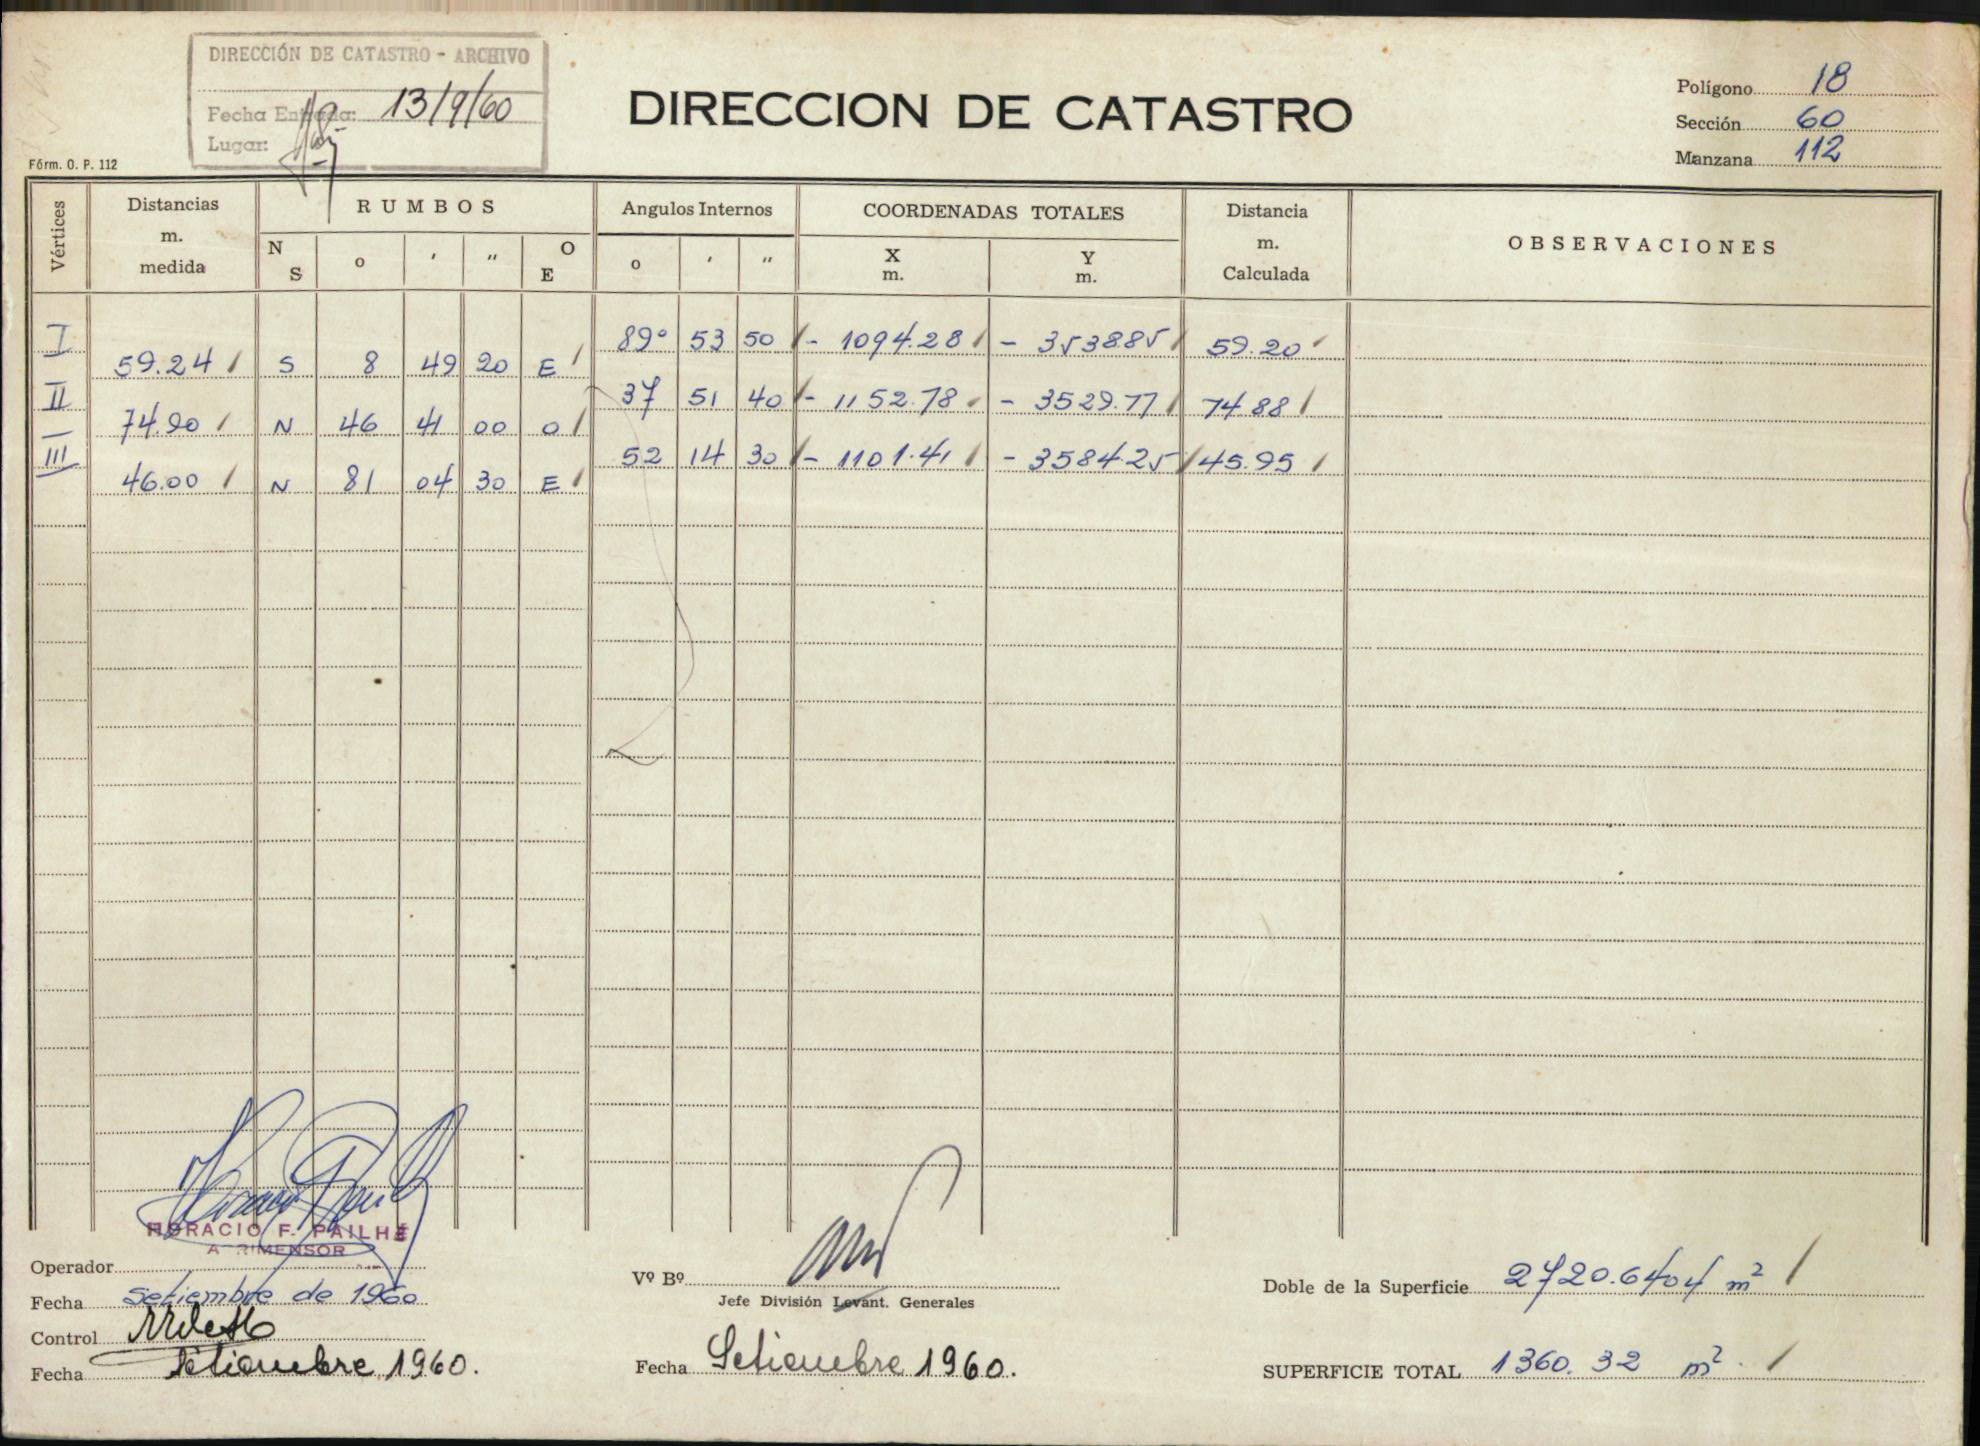 DIRECCIÓN DE CATASTRO - ARCHIVO
Fecha Entrada: 13/9/60
Lugar:
DIRECCION DE CATASTRO
Polígono 18
Sección 60
Manzana 112
Fórm. O. P. 112
Vértices
Distancias m. medida
RUMBOS
N S o ' " O E
Angulos Internos
o ' "
COORDENADAS TOTALES
X m. Y m.
Distancia m. Calculada
OBSERVACIONES
I 89° 53 50 - 1094.28 - 3538.85 59.20
59.24 S 8 49 20 E
II 37 51 40 - 1152.78 - 3529.77 74.88
74.90 N 46 41 00 O
III 52 14 30 - 1101.41 - 3584.25 45.95
46.00 N 81 04 30 E
HORACIO F. PAILHÉ
AGRIMENSOR
Operador
Fecha setiembre de 1960
Control
Fecha Setiembre 1960.
Vº Bº
Jefe División Levant. Generales
Fecha Setiembre 1960.
Doble de la Superficie 2720.6404 m²
SUPERFICIE TOTAL 1360.32 m².